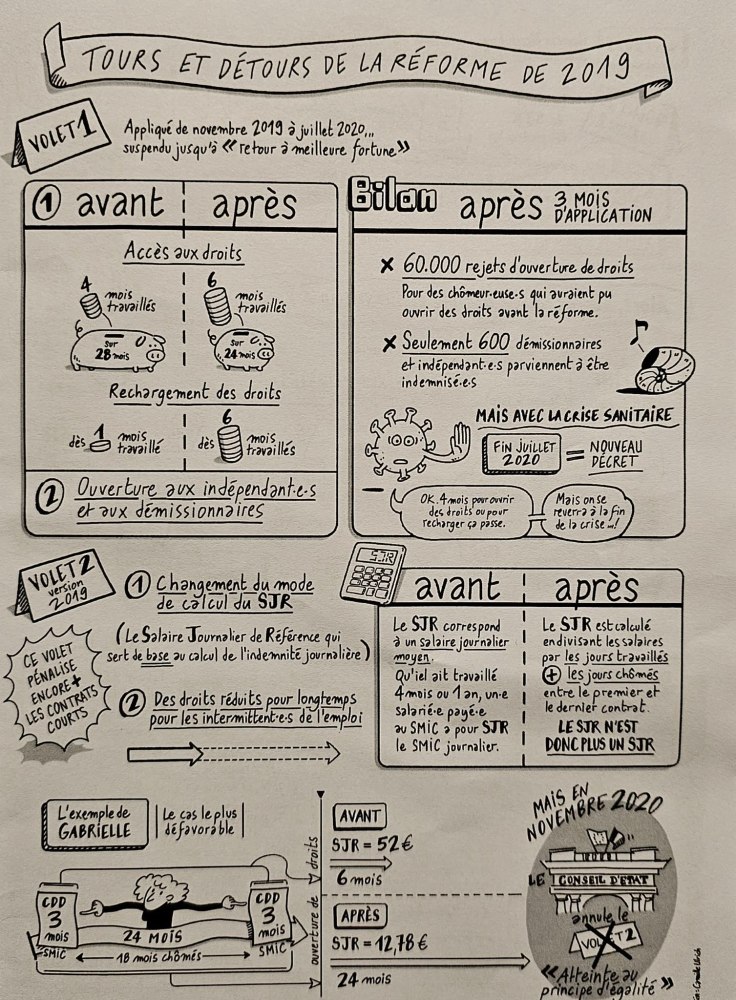 TOURS ET DÉTOURS DE LA RÉFORME DE 2019
VOLET 1
Appliqué de novembre 2019 à juillet 2020...
suspendu jusqu'à « retour à meilleure fortune »
① avant après
Accès aux droits
4 mois travaillés
sur 28 mois
6 mois travaillés
sur 24 mois
Rechargement des droits
dès 1 mois travaillé
dès 6 mois travaillés
② Ouverture aux indépendant·e·s
et aux démissionnaires
Bilan après 3 MOIS D'APPLICATION
✗ 60.000 rejets d'ouverture de droits
Pour des chômeur·euse·s qui auraient pu
ouvrir des droits avant la réforme.
✗ Seulement 600 démissionnaires
et indépendant·e·s parviennent à être
indemnisé·e·s
MAIS AVEC LA CRISE SANITAIRE
FIN JUILLET 2020 = NOUVEAU DÉCRET
OK. 4 mois pour ouvrir
des droits ou pour
recharger ça passe.
Mais on se
reverra à la fin
de la crise...!
VOLET 2
version
2019
CE VOLET
PÉNALISE
ENCORE +
LES CONTRATS
COURTS
① Changement du mode
de calcul du SJR
(Le Salaire Journalier de Référence qui
sert de base au calcul de l'indemnité journalière)
② Des droits réduits pour longtemps
pour les intermittent·e·s de l'emploi
SJR
avant
Le SJR correspond
à un salaire journalier
moyen.
Qu'iel ait travaillé
4 mois ou 1 an, un·e
salarié·e payé·e
au SMIC a pour SJR
le SMIC journalier.
après
Le SJR est calculé
en divisant les salaires
par les jours travaillés
+ les jours chômés
entre le premier et
le dernier contrat.
LE SJR N'EST
DONC PLUS UN SJR
L'exemple de
GABRIELLE
Le cas le plus
défavorable
CDD
3
mois
SMIC
CDD
3
mois
SMIC
24 MOIS
18 mois chômés
ouverture de droits
AVANT
SJR = 52€
6 mois
APRÈS
SJR = 12,78€
24 mois
MAIS EN
NOVEMBRE 2020
LE CONSEIL D'ETAT
annule le
VOLET 2
« Atteinte au
principe d'égalité »